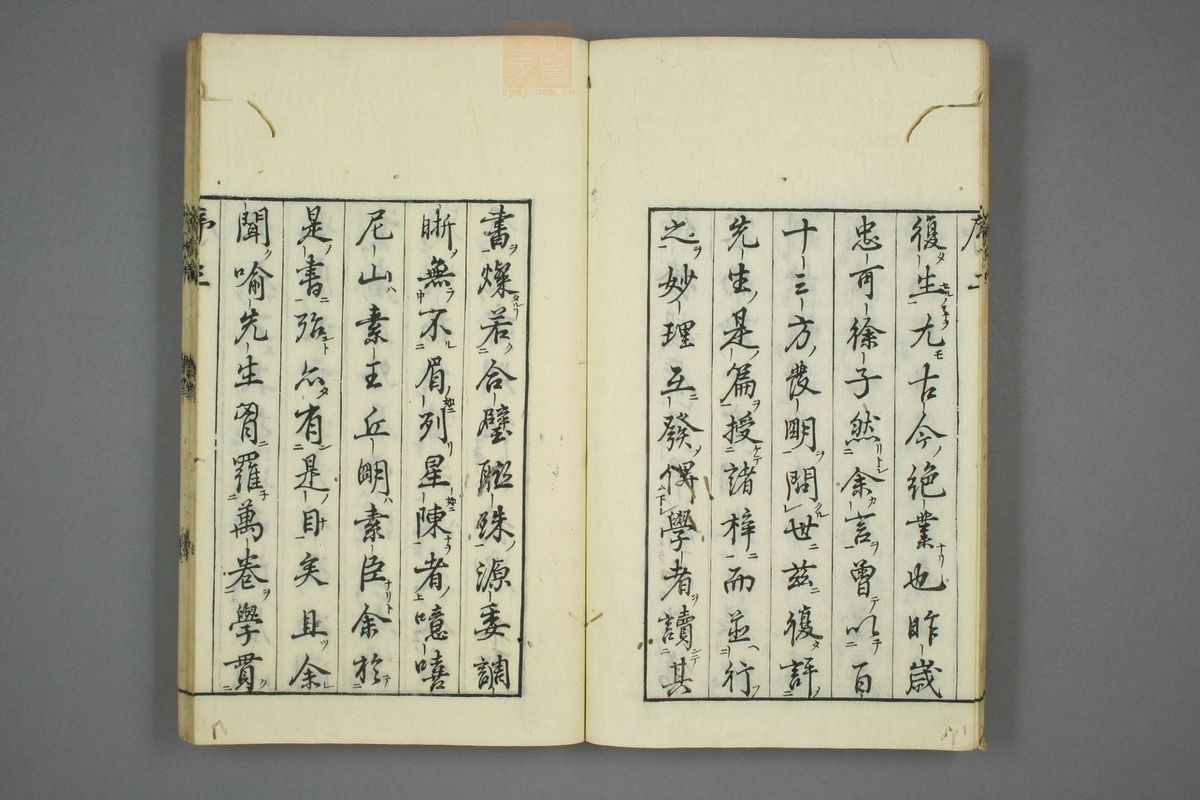 復生尤古今絶業也昨歳
忠可徐子然余言曾以百
十三方發明問世茲復評
先生是篇授諸梓而並行
之妙理互發俾學者讀其
書燦若合璧聯珠源委調
晣無不眉列星陳者噫嘻
尼山素王丘明素臣余於
是書殆亦有是目矣且余
聞喻先生胷羅萬卷學貫